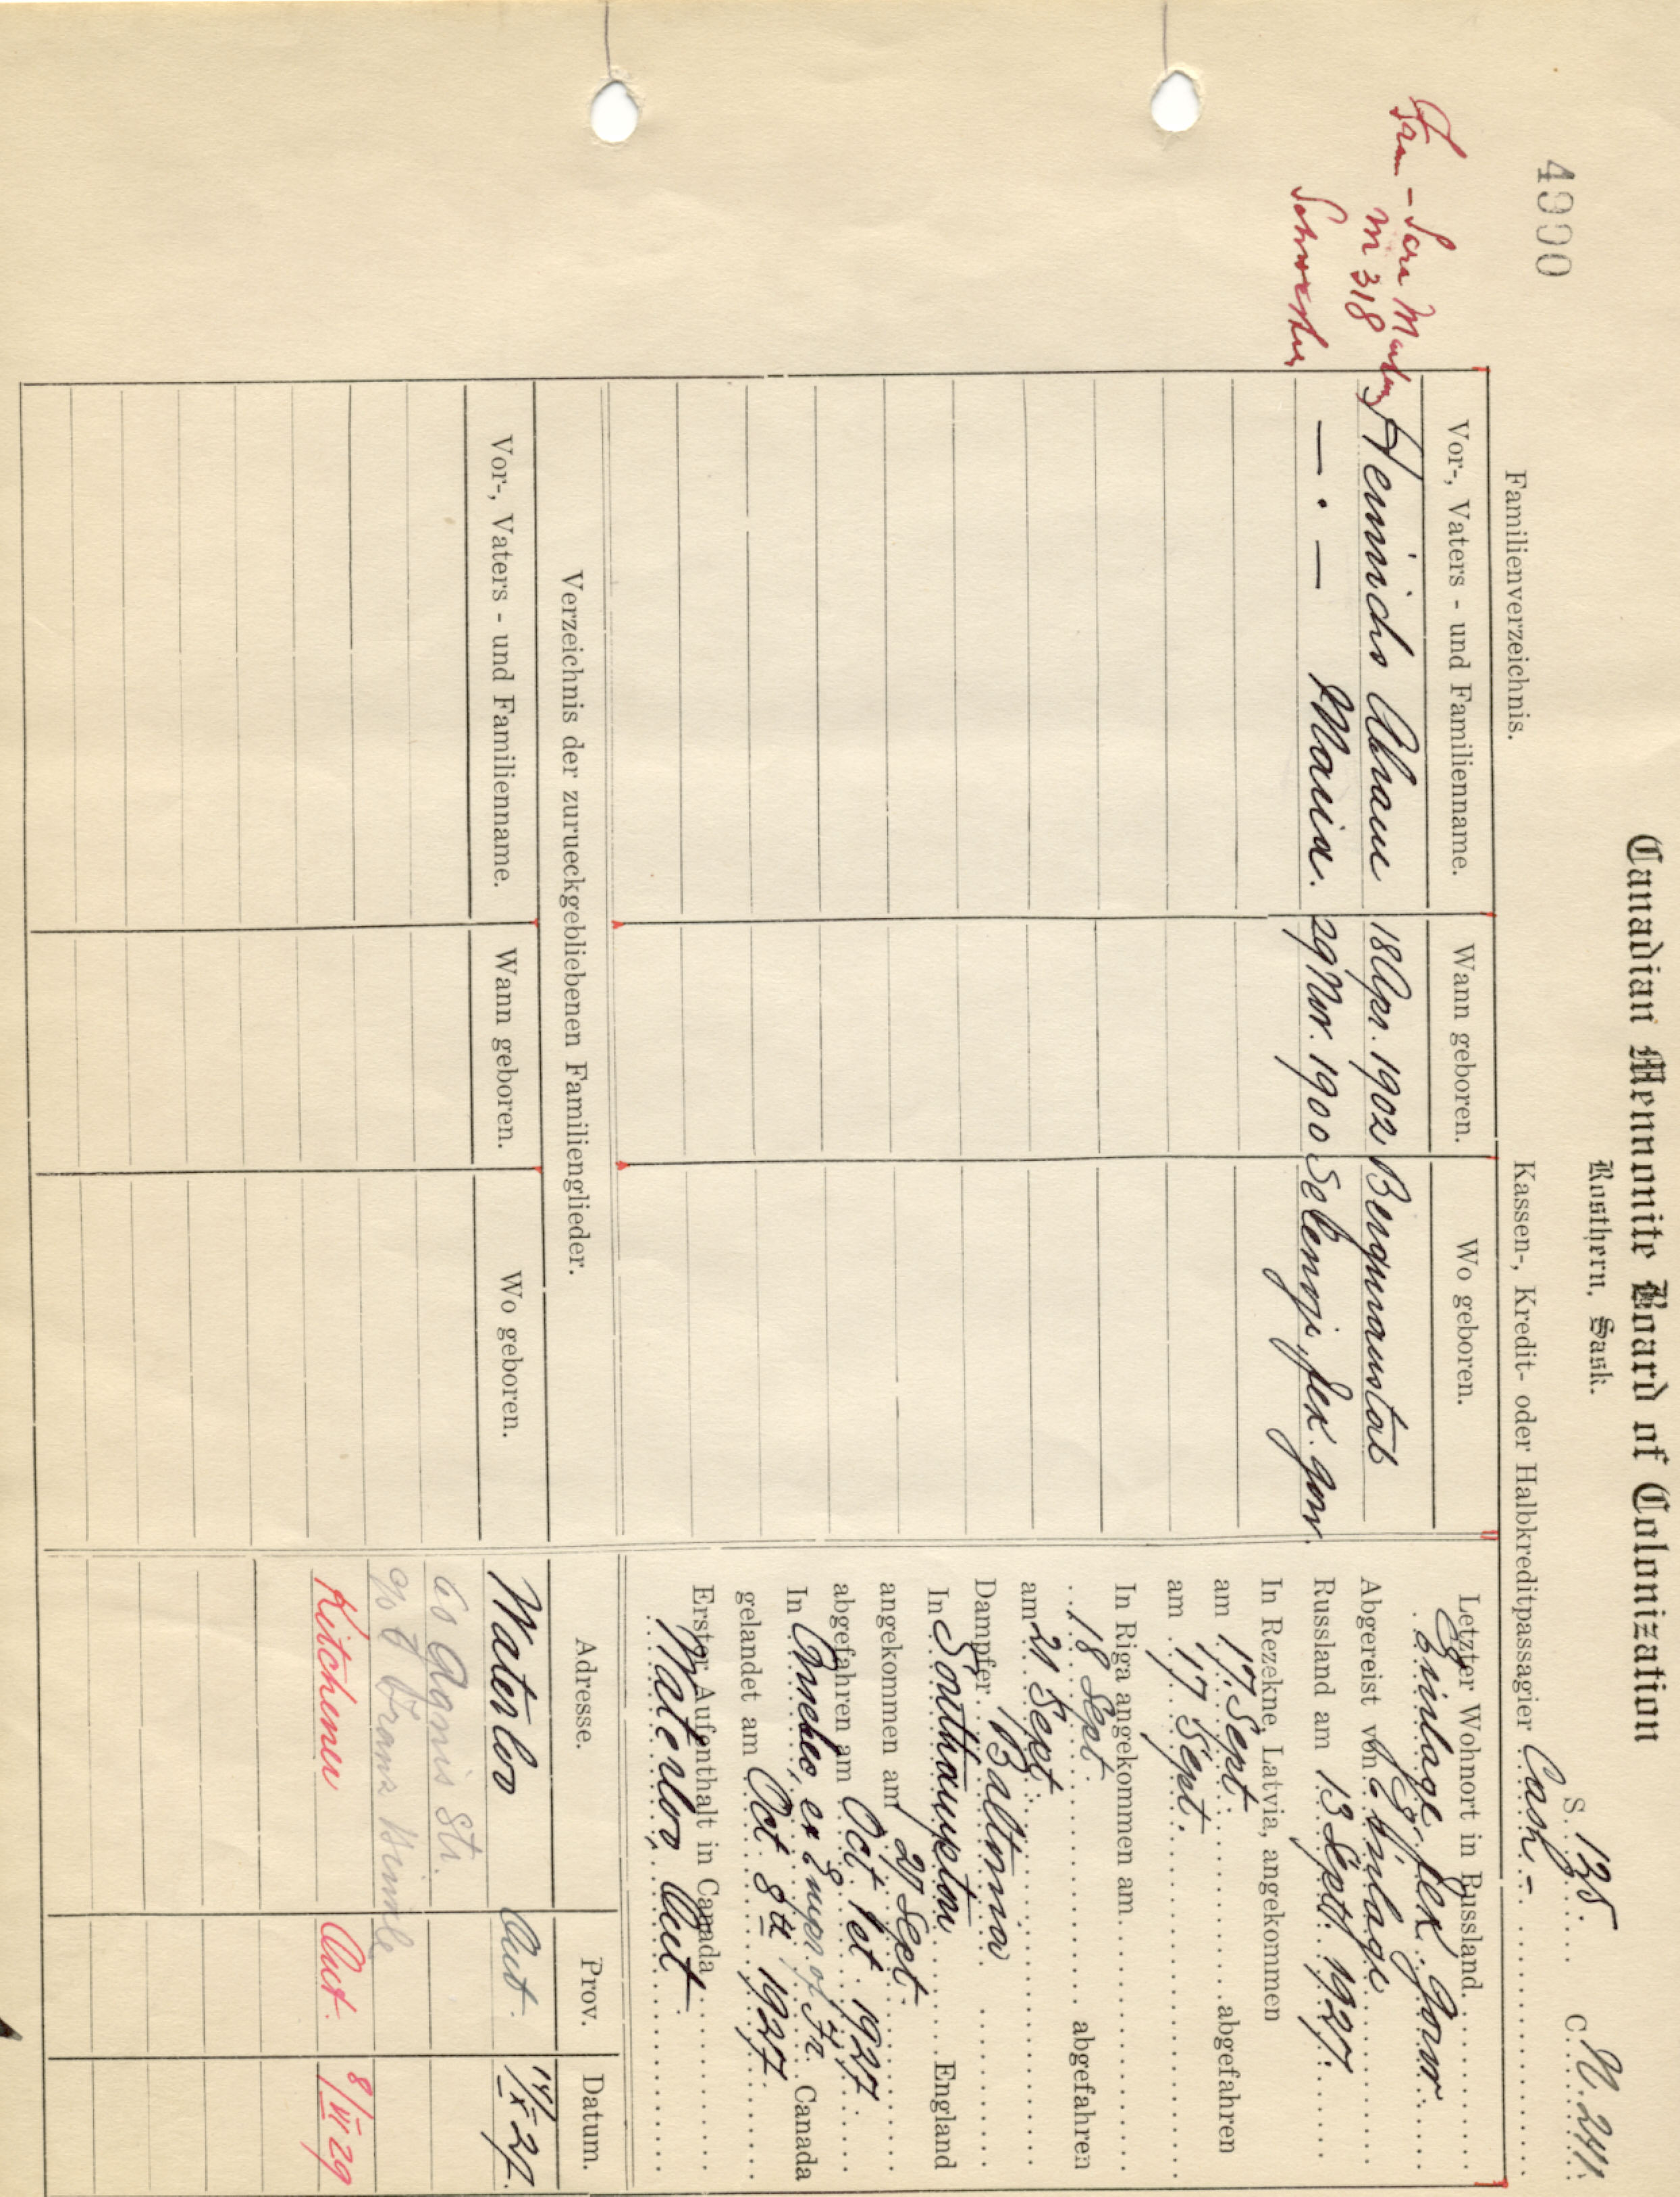 4900
Canadian Mennonite Board of Colonization
Rosthern, Sask.
S. 135. C. N. 241.
Familienverzeichnis.
Kassen-, Kredit- oder Halbkreditpassagier Cash.-
Vor-, Vaters - und Familienname. Wann geboren. Wo geboren.
Frau - Sara
M 318
Schwester
Heinrichs Abram 18 Apr. 1902 Bergmanstal
— . — Maria. 29 Nvr. 1900 Selenyj, Jek. gow.
Letzter Wohnort in Russland.
Einlage, Jek. Gouv.
Abgereist von Einlage
Russland am 13 Sept. 1927.
In Rezekne, Latvia, angekommen
am 17. Sept. abgefahren
am 17 Sept.
In Riga angekommen am
18 Sept. abgefahren
am 21 Sept.
Dampfer Baltonia
In Southampton England
angekommen am 27 Sept.
abgefahren am Oct. 1st 1927.
In Quebec, ex Empr. of Fr. Canada
gelandet am Oct 8th 1927.
Erster Aufenthalt in Canada
Waterloo, Ont.
Verzeichnis der zurueckgebliebenen Familienglieder.
Vor-, Vaters - und Familienname. Wann geboren. Wo geboren.
Adresse. Prov. Datum.
Waterloo Ont. 14/X 27.
60 Agnis Str.
c/o J Franz
Kitchener Ont. 8/VI 29